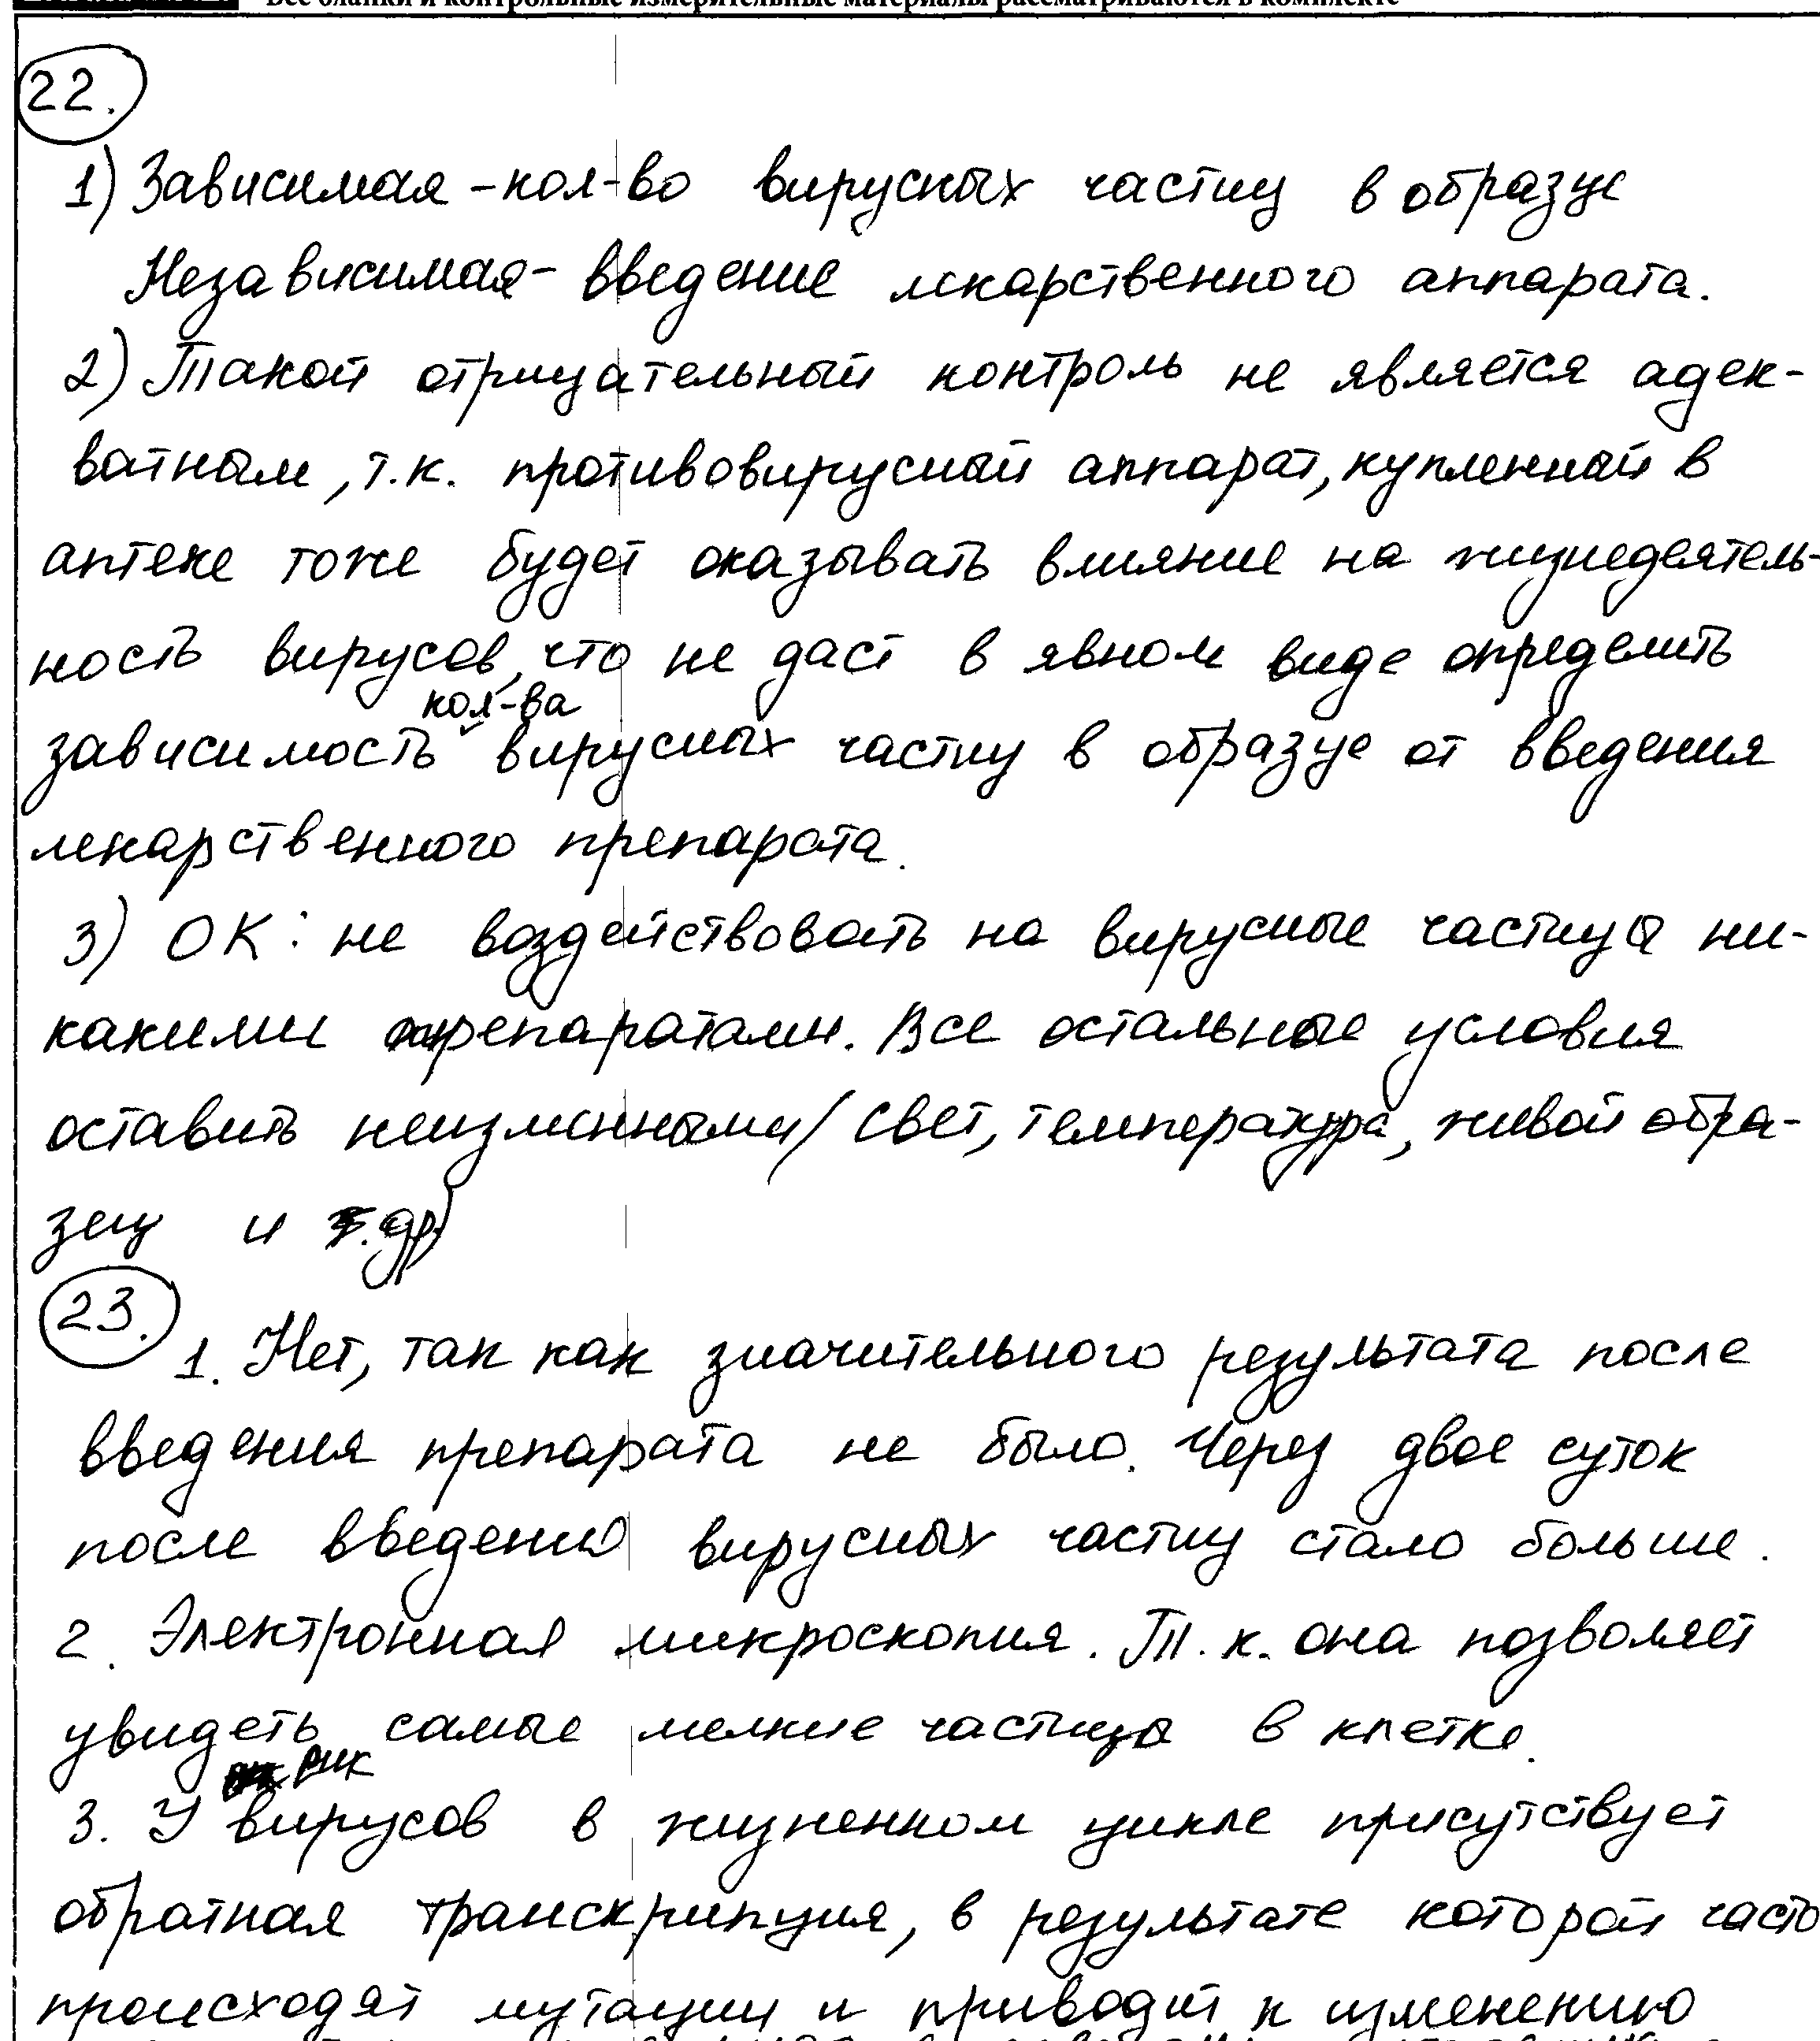 Все бланки и контрольные измерительные материалы рассматриваются в комплекте
22.
1) Зависимая - кол-во вирусных частиц в образце
Независимая - введение лекарственного аппарата.
2) Такой отрицательный контроль не является адек-
ватным, т.к. противовирусный аппарат, купленный в
аптеке тоже будет оказывать влияние на жизнедеятель-
ность вирусов, что не даст в явном виде определить
кол-ва
зависимость вирусных частиц в образце от введения
лекарственного препарата.
3) ОК: не воздействовать на вирусные частицы ни-
какими препаратами. Все остальные условия
оставить неизменными (свет, температура, живой обра-
зец и др)
23.
1. Нет, так как значительного результата после
введения препарата не было. Через двое суток
после введения вирусных частиц стало больше.
2. Электронная микроскопия. Т.к. она позволяет
увидеть самые мелкие частицы в клетке.
РНК
3. У вирусов в жизненном цикле присутствует
обратная транскрипция, в результате которой часто
происходят мутации и приводит к изменению